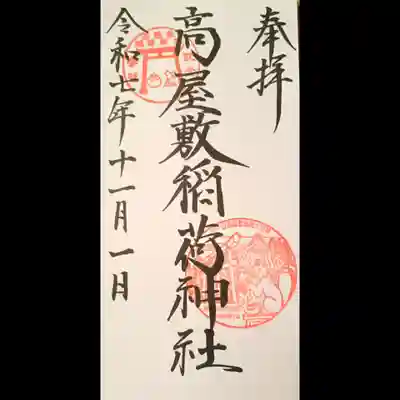 奉拝
高屋敷稲荷神社
令和七年十一月一日